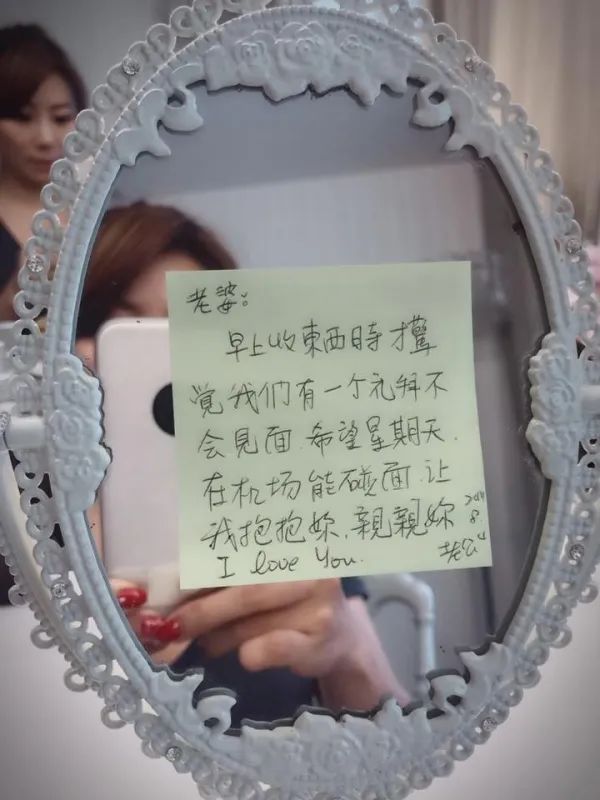 老婆:
早上收東西時才
覺我们有一个礼拜不
会見面.希望星期天.
在机场能碰面.让
我抱抱妳.親親妳
I love You.
老公